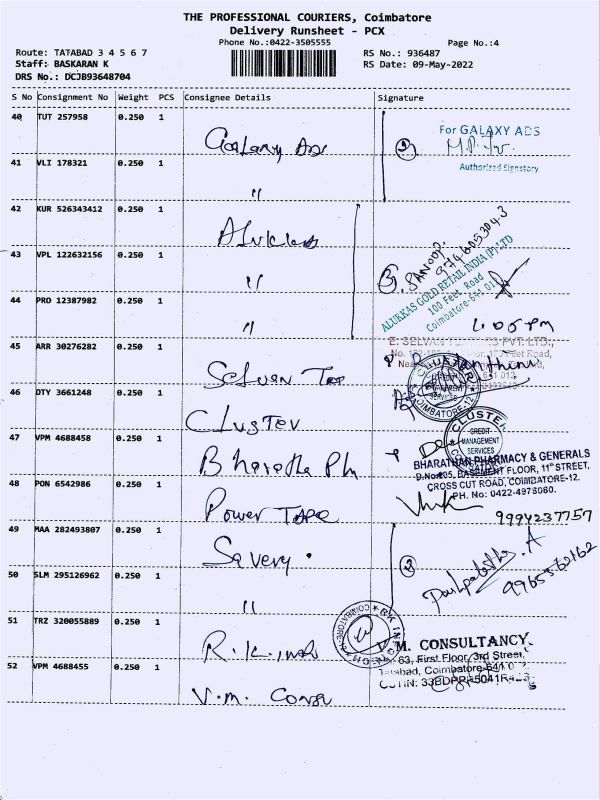 THE PROFESSIONAL COURIERS, Coimbatore
Delivery Runsheet - PCX
Phone No.:0422-3505555
Page No.:4
Route: TATABAD 3 4 5 6 7
RS No.: 936487
Staff: BASKARAN K
RS Date: 09-May-2022
DRS No.: DCJB93648704
S No Consignment No Weight PCS Consignee Details Signature
40 TUT 257958 0.250 1
Galaxy Ads
For GALAXY ADS
Authorized Signatory
41 VLI 178321 0.250 1
"
42 KUR 526343412 0.250 1
Alukkas
SANOOP
9746053043
43 VPL 122632156 0.250 1
"
ALUKKAS GOLD RETAIL INDIA (P) LTD
100 Feet Road
Coimbatore-641 012
44 PRO 12387982 0.250 1
"
1.05 PM
45 ARR 30276282 0.250 1
Selvan Tap
E. SELVAN PVT. LTD.,
Feet Road,
46 DTY 3661248 0.250 1
Cluster
CLUSTER
COIMBATORE-12
47 VPM 4688458 0.250 1
Bharatha Ph
CLUSTER
CREDIT
MANAGEMENT
SERVICES
BHARATHAN PHARMACY & GENERALS
D.No:205, BASEMENT FLOOR, 11th STREET,
CROSS CUT ROAD, COIMBATORE-12.
PH. No: 0422-4978080.
48 PON 6542986 0.250 1
Power Tape
9994237757
49 MAA 282493807 0.250 1
Savery
9965562162
50 SLM 295126962 0.250 1
"
51 TRZ 320055889 0.250 1
R.K. inds
V.M. CONSULTANCY
63, First Floor, 3rd Street,
Tatabad, Coimbatore-641 0
52 VPM 4688455 0.250 1
V.M. Consu